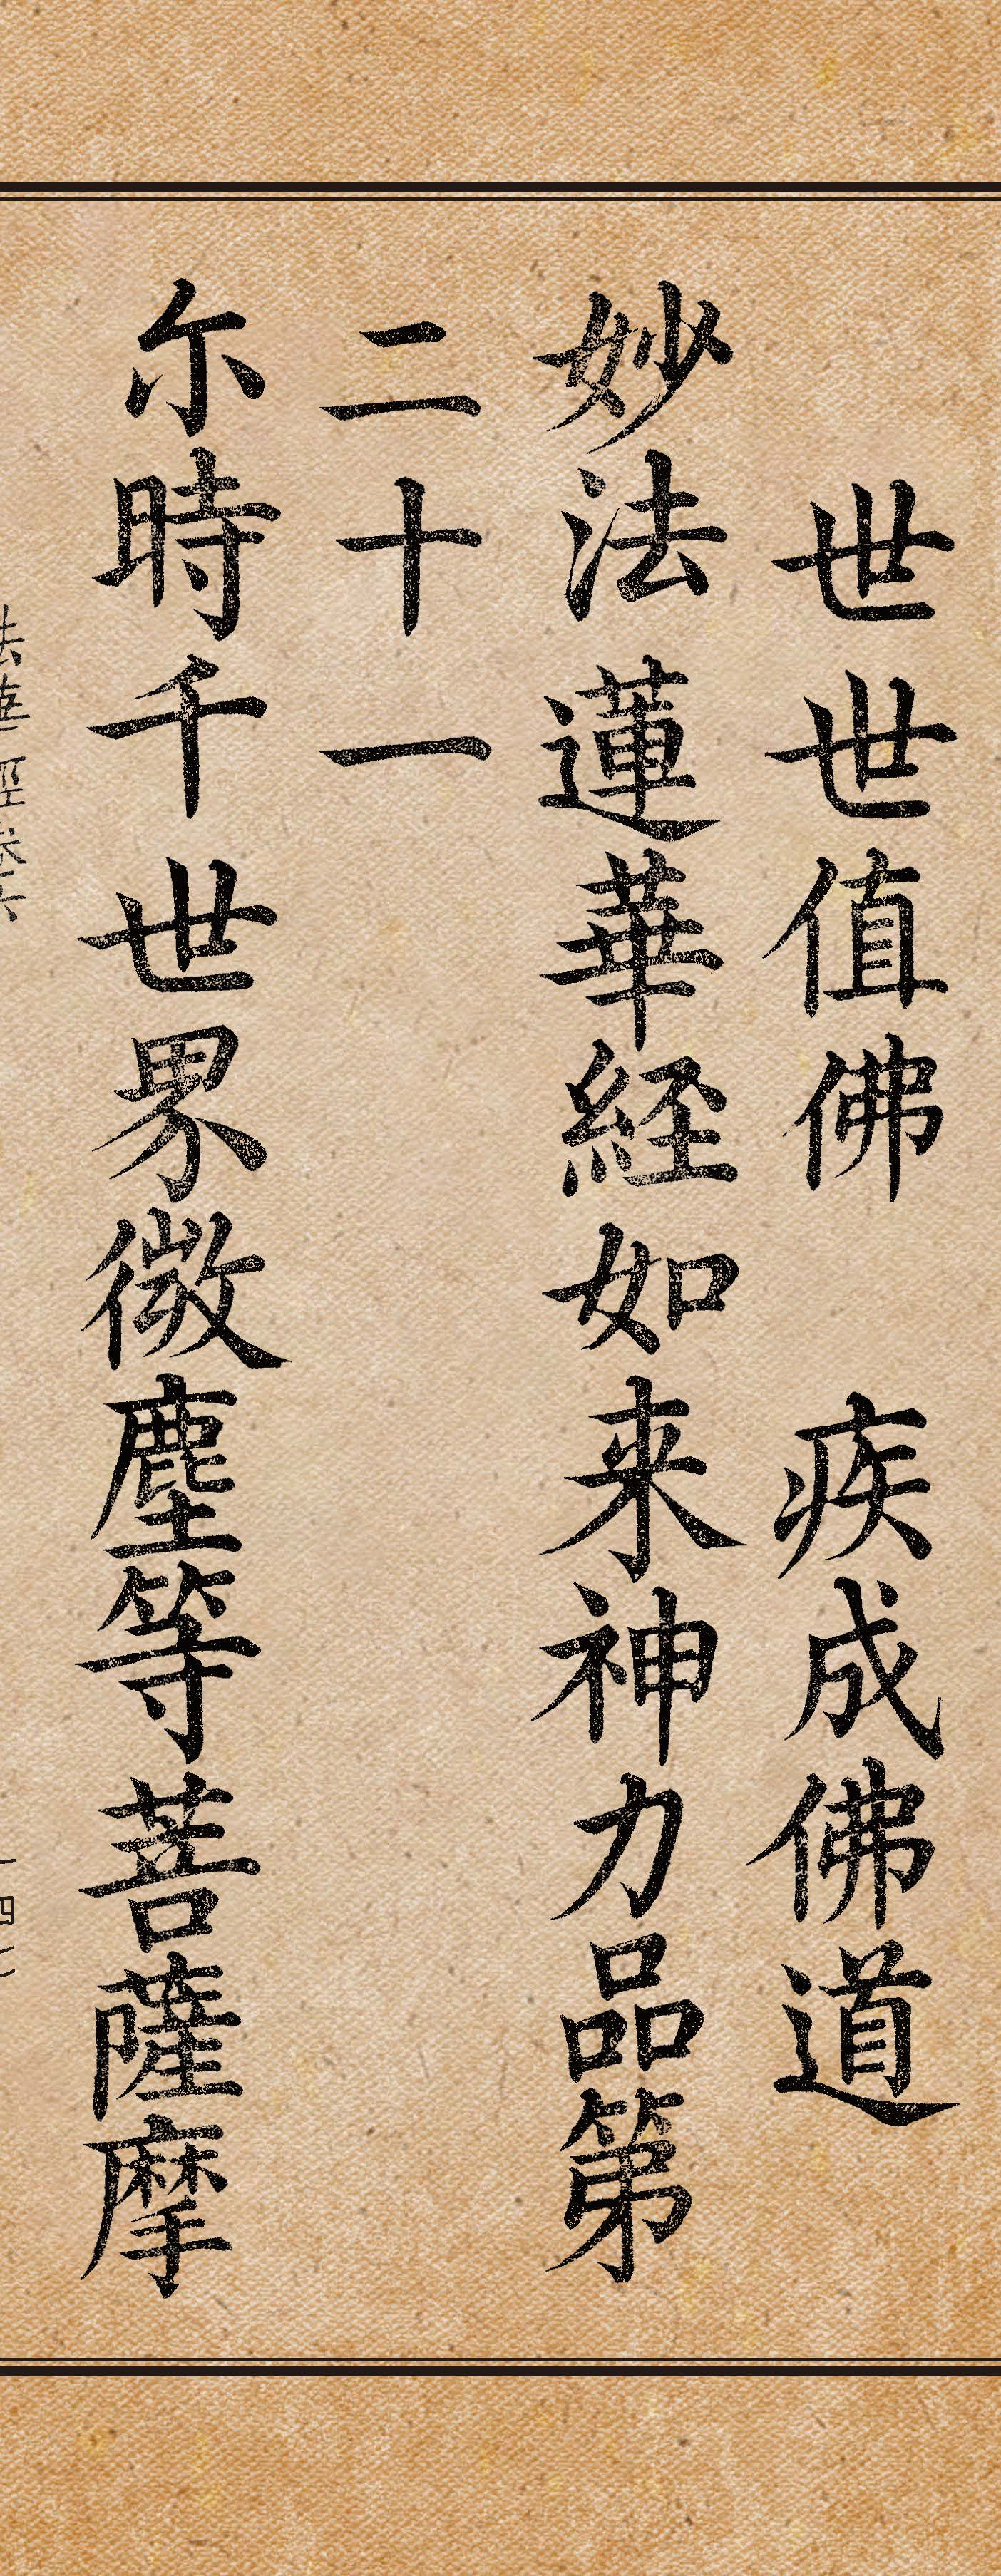 世世值佛　疾成佛道
妙法蓮華経如来神力品第
二十一
尓時千世界微塵等菩薩摩
法華經卷六